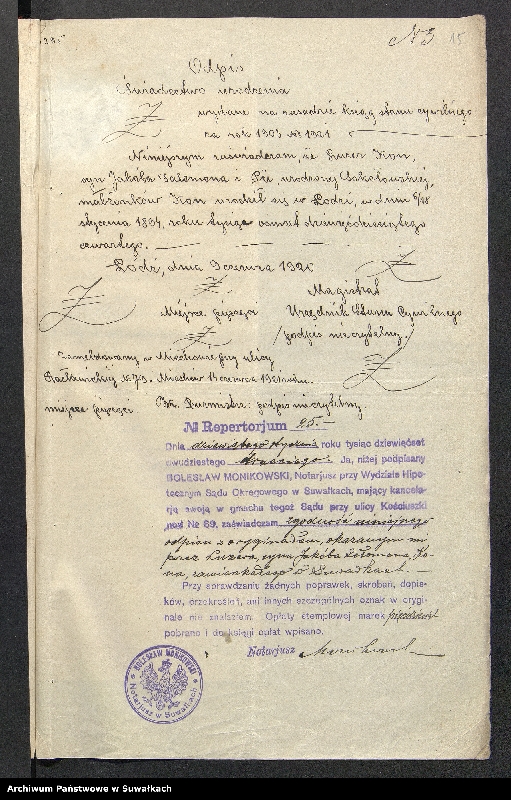 № 3 15
Odpis
Świadectwo urodzenia
wydane na zasadzie ksiąg stanu cywilnego
za rok 1903 № 1921
Niniejszym zaświadczam, że Luzer Kon,
syn Jakóba Salomona i urodzonej Sokołowskiej,
małżonków Kon urodził się w Łodzi, w dniu 6/18
stycznia 1894, roku tysiąc ośmset dziewięćdziesiątego
czwartego.
Łódź, dnia 9 czerwca 192
Magistrat
Miejsce pieczęci Urzędnik Stanu Cywilnego
/podpis nieczytelny/
Zameldowany w przy ulicy
№ 7/9. 15 czerwca 1921 roku.
miejsce pieczęci Burmistrz: podpis nieczytelny.
№ Repertorjum 25.—
Dnia dziewiątego stycznia roku tysiąc dziewięćset
dwudziestego Ja, niżej podpisany
BOLESŁAW MONIKOWSKI, Notarjusz przy Wydziale Hipo-
tecznym Sądu Okręgowego w Suwałkach, mający kancela-
rję swoją w gmachu tegoż Sądu przy ulicy Kościuszki
pod № 69, zaświadczam zgodność niniejszego
odpisu z oryginałem, okazanym mi
przez Luzera, syna Jakóba Ko-
na, zamieszkałego w Suwałkach.—
Przy sprawdzaniu żadnych poprawek, skrobań, dopis-
ków, przekreśleń, ani innych szczególnych oznak w orygi-
nale nie znalazłem. Opłaty stemplowej marek pięćdziesiąt
pobrano i do księgi opłat wpisano.
Notarjusz Monikowski
BOLESŁAW MONIKOWSKI
Notarjusz w Suwałkach
Archiwum Państwowe w Suwałkach